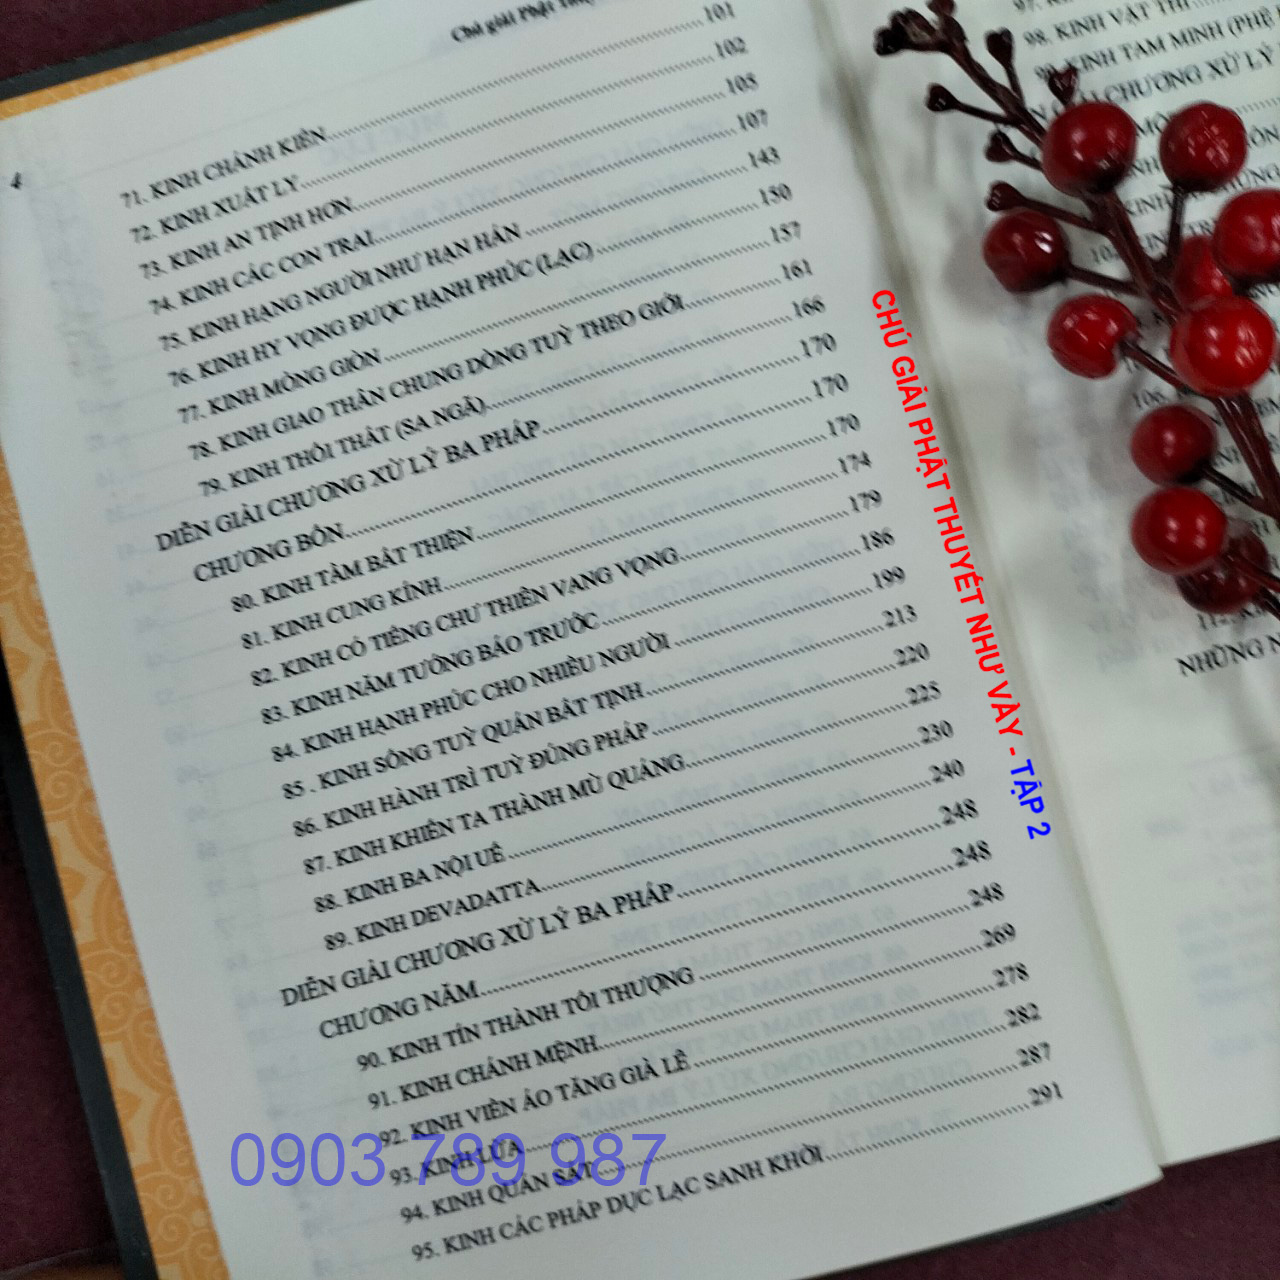 4
Chú giải Phật Thuyết
71. KINH CHÁNH KIẾN........101
72. KINH XUẤT LY........102
73. KINH AN TỊNH HƠN........105
74. KINH CÁC CON TRAI........107
75. KINH HẠNG NGƯỜI NHƯ HẠN HÁN........143
76. KINH HY VỌNG ĐƯỢC HẠNH PHÚC (LẠC)........150
77. KINH MỎNG GIÒN........157
78. KINH GIAO THÂN CHUNG DÒNG TUỲ THEO GIỚI........161
79. KINH THỐI THẤT (SA NGÃ)........166
DIỄN GIẢI CHƯƠNG XỬ LÝ BA PHÁP........170
CHƯƠNG BỐN........170
80. KINH TẦM BẤT THIỆN........170
81. KINH CUNG KÍNH........174
82. KINH CÓ TIẾNG CHƯ THIÊN VANG VỌNG........179
83. KINH NĂM TƯỚNG BÁO TRƯỚC........186
84. KINH HẠNH PHÚC CHO NHIỀU NGƯỜI........199
85 . KINH SỐNG TUỲ QUÁN BẤT TỊNH........213
86. KINH HÀNH TRÌ TUỲ ĐÚNG PHÁP........220
87. KINH KHIẾN TA THÀNH MÙ QUÁNG........225
88. KINH BA NỘI UẾ........230
89. KINH DEVADATTA........240
DIỄN GIẢI CHƯƠNG XỬ LÝ BA PHÁP........248
CHƯƠNG NĂM........248
90. KINH TÍN THÀNH TỐI THƯỢNG........248
91. KINH CHÁNH MỆNH........269
92. KINH VIỀN ÁO TĂNG GIÀ LÊ........278
93. KINH LỬA........282
94. KINH QUÁN SÁT........287
95. KINH CÁC PHÁP DỤC LẠC SANH KHỞI........291
97.
98. KINH VẬT THÍ
KINH TAM MINH (PHỆ
GIẢI CHƯƠNG XỬ LÝ
106.
112.
NHỮNG
CHÚ GIẢI PHẬT THUYẾT NHƯ VÀY - TẬP 2
0903 789 987